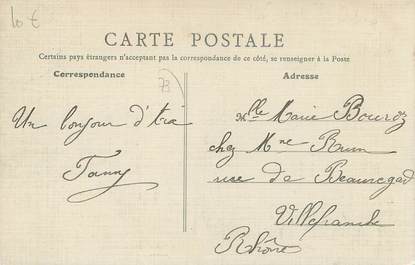 10 €
CARTE POSTALE
Certains pays étrangers n'acceptant pas la correspondance de ce côté, se renseigner à la Poste
Correspondance
Adresse
73
Un bonjour d'
Fanny
Mlle Marie
chez Mme
rue de Beauregad
Villefranche
Rhône